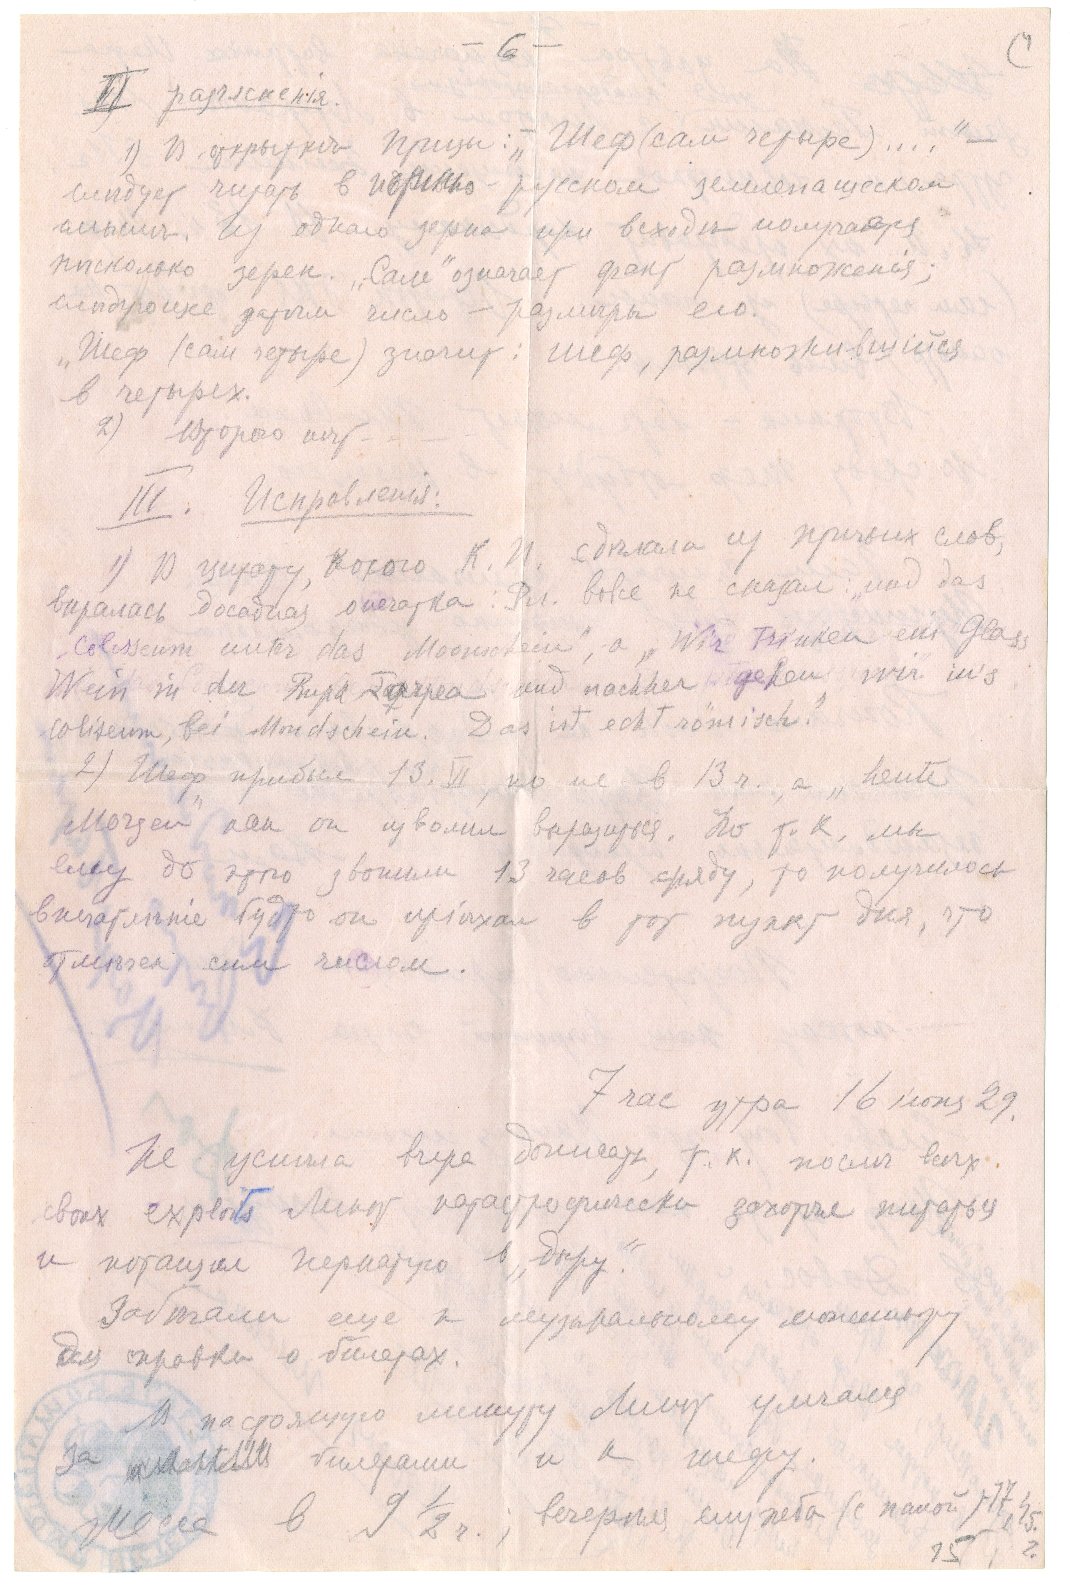 — 6 —
II разъясненія.
1) В открыткѣ Птицы: „Шеф (сам четыре) ...." —
слѣдует читать в русском землепашеском
смыслѣ. Из однаго зерна при всходѣ получается
нѣсколько зерен. „Сам" означает факт размноженія;
слѣдующее затѣм число — размѣры его.
„Шеф (сам четыре) значит: шеф, размножившійся
в четырех.
2) Второго нѣт - - - -
III. Исправленія:
1) В цитату, К. И. сдѣлала из птичьих слов,
вкралась досадная опечатка: вовсе не сказал: „und das
Colosseum unter das Moonschein", а „Wir Trinken ein Glass
Wein in der Rupa Tarpea und nachher gehen wir in's
Coliseum, bei Mondschein. Das ist echt römisch."
2) Шеф прибыл 13. VI, но не в 13 ч., а „heute
Morgen" как он изволил выразиться. Но т. к. мы
ему до этого звонили 13 часов сряду, то получилось
впечатлѣніе будто он пріѣхал в тот пункт дня, что
отмѣчен сим числом.
7 час утра 16 іюня 29.
Не успѣла вчера дописать, т. к. послѣ всѣх
своих exploits Линот катастрофически захотѣл питаться
и потащил пернатую в „дыру".
Забѣгали еще к музыкальному
для справки о билетах.
В настоящую минуту Линот умчался
за билетами и к шефу.
Месса в 9 1/2 ч.; вечерняя служба (с папой) 17 ч.
15